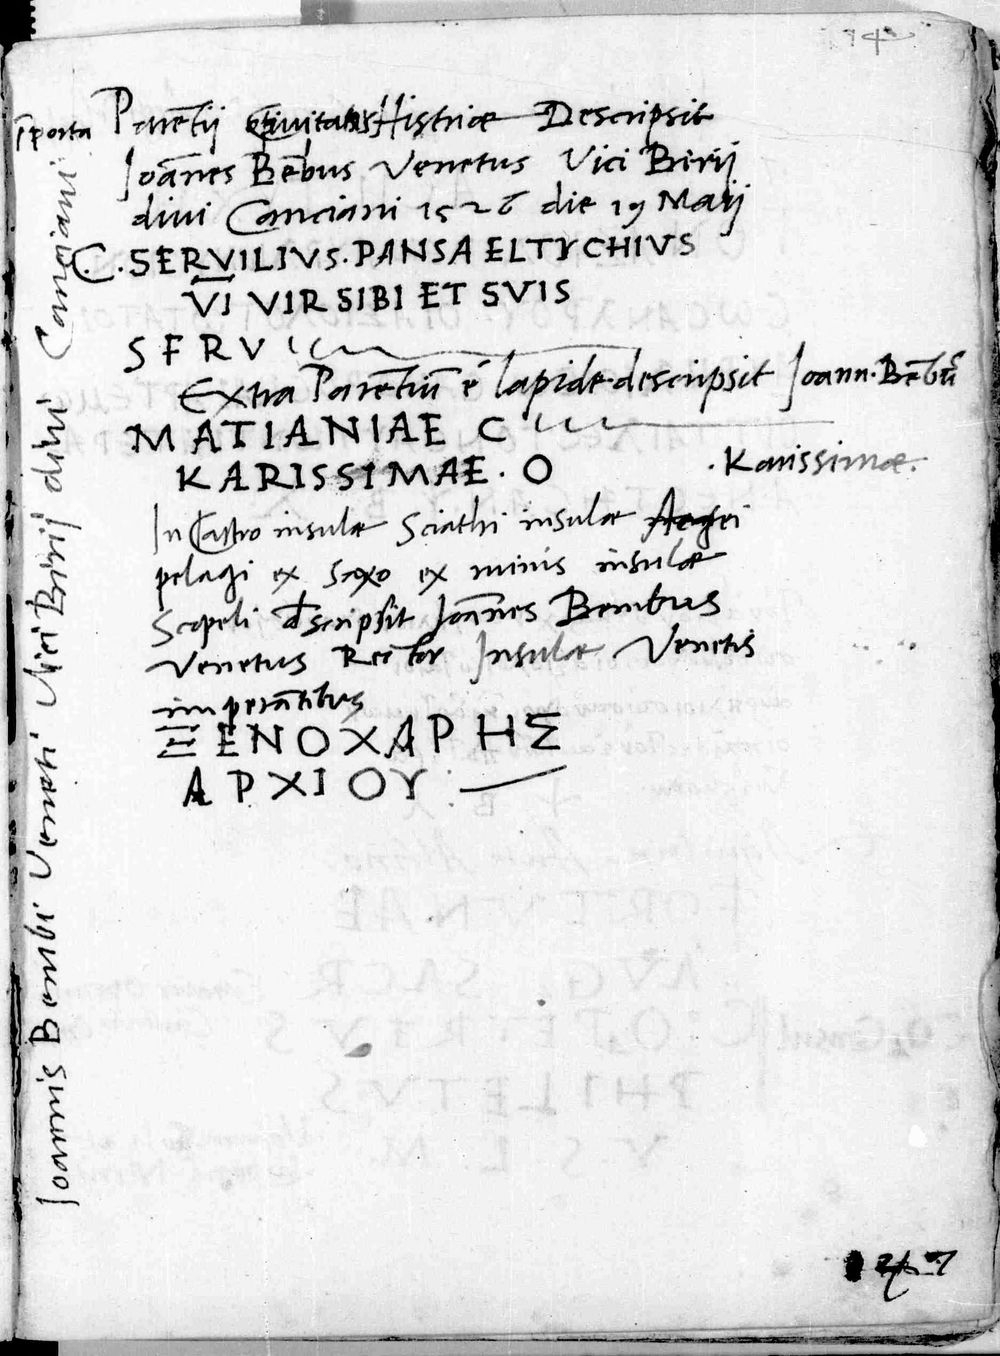 ī porta Parētij Ciuitatis Histriæ Descripsit
Ioānes Bēbus Venetus Vici Birij
diui Canciani 1526 die 19 Maij
C. SERVILIVS. PANSA ELTYCHIVS
VI VIR SIBI ET SVIS
SERV
Extra Parētiū ē lapide descripsit Ioann. Bēbū
MATIANIAE C
KARISSIMAE. O . Karissimæ.
In Castro insulæ Sciathi insulæ Aegei
pelagi ex saxo ex minis insulæ
Scopeli dscripsit Ioānes Bembus
Venetus Rector Insulæ Venetis
imperātibus
ΞΕΝΟΧΑΡΗΣ
ΑΡΧΙΟΥ
Ioannis Bembi Veneti Vici Birij diui Canciani
247